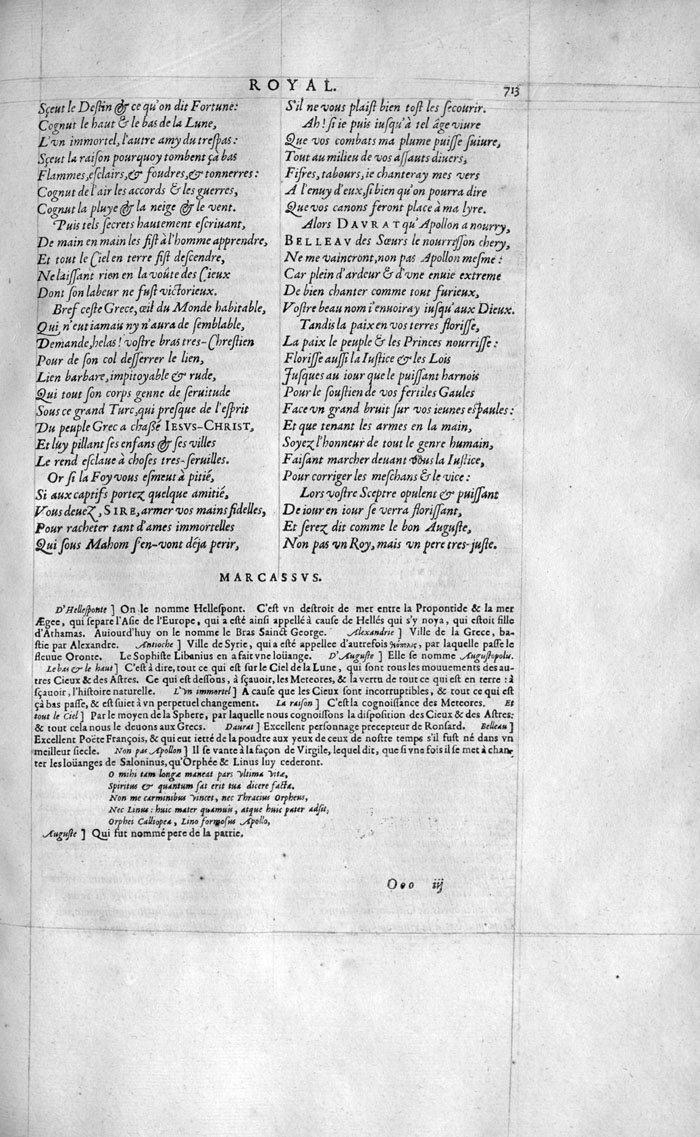 ROYAL.
713
Sçeut le Destin & ce qu'on dit Fortune:
Cognut le haut & le bas de la Lune,
L'vn immortel, l'autre amy du trespas:
Sçeut la raison pourquoy tombent çà bas
Flammes, esclairs, & foudres, & tonnerres:
Cognut de l'air les accords & les guerres,
Cognut la pluye & la neige & le vent.
Puis tels secrets hautement escriuant,
De main en main les fist à l'homme apprendre,
Et tout le Ciel en terre fist descendre,
Ne laissant rien en la voûte des Cieux
Dont son labeur ne fust victorieux.
Bref ceste Grece, œil du Monde habitable,
Qui n'eut iamau ny n'aura de semblable,
Demande, helas! vostre bras tres-Chrestien
Pour de son col desserrer le lien,
Lien barbare, impitoyable & rude,
Qui tout son corps genne de seruitude
Sous ce grand Turc, qui presque de l'esprit
Du peuple Grec a chassé IESVS-CHRIST,
Et luy pillant ses enfans & ses villes
Le rend esclaue à choses tres-seruilles.
Or si la Foy vous esmeut à pitié,
Si aux captifs portez quelque amitié,
Vous deuez, SIRE, armer vos mains fidelles,
Pour racheter tant d'ames immortelles
Qui sous Mahom s'en-vont déja perir,
S'il ne vous plaist bien tost les secourir.
Ah! si ie puis iusqu'à tel âge viure
Que vos combats ma plume puisse suiure,
Tout au milieu de vos assauts diuers,
Fifres, tabours, ie chanteray mes vers
A l'enuy d'eux, si bien qu'on pourra dire
Que vos canons feront place à ma lyre.
Alors DAVRAT qu'Apollon a nourry,
BELLEAV des Sœurs le nourrisson chery,
Ne me vaincront, non pas Apollon mesme:
Car plein d'ardeur & d'vne enuie extreme
De bien chanter comme tout furieux,
Vostre beau nom i'enuoiray iusqu'aux Dieux.
Tandis la paix en vos terres florisse,
La paix le peuple & les Princes nourrisse:
Florisse aussi la Iustice & les Lois
Jusques au iour que le puissant harnois
Pour le soustien de vos fertiles Gaules
Face vn grand bruit sur vos ieunes espaules:
Et que tenant les armes en la main,
Soyez l'honneur de tout le genre humain,
Faisant marcher deuant vous la Iustice,
Pour corriger les meschans & le vice:
Lors vostre Sceptre opulent & puissant
De iour en iour se verra florissant,
Et serez dit comme le bon Auguste,
Non pas vn Roy, mais vn pere tres-juste.
MARCASSVS.
D'Hellesponte ] On le nomme Hellespont. C'est vn destroit de mer entre la Propontide & la mer
Ægee, qui separe l'Asie de l'Europe, qui a esté ainsi appellé à cause de Hellés qui s'y noya, qui estoit fille
d'Athamas. Auiourd'huy on le nomme le Bras Sainct George. Alexandrie ] Ville de la Grece, ba-
stie par Alexandre. Antioche ] Ville de Syrie, qui a esté appellee d'autrefois par laquelle passe le
fleuue Oronte. Le Sophiste Libanius en a fait vne loüange. D'Auguste ] Elle se nomme Augustopolu.
Le bas & le haut ] C'est à dire, tout ce qui est sur le Ciel de la Lune, qui sont tous les mouuemens des au-
tres Cieux & des Astres. Ce qui est dessous, à sçauoir, les Meteores, & la vertu de tout ce qui est en terre: à
sçauoir, l'histoire naturelle. L'vn immortel ] A cause que les Cieux sont incorruptibles, & tout ce qui est
çà bas passe, & est suiet à vn perpetuel changement. La raison ] C'est la cognoissance des Meteores. Et
tout le Ciel ] Par le moyen de la Sphere, par laquelle nous cognoissons la disposition des Cieux & des Astres:
& tout cela nous le deuons aux Grecs. Daurat ] Excellent personnage precepteur de Ronsard. Belleau ]
Excellent Poëte François, & qui eut ietté de la poudre aux yeux de ceux de nostre temps s'il fust né dans vn
meilleur siecle. Non pas Apollon ] Il se vante à la façon de Virgile, lequel dit, que si vne fois il se met à chan-
ter les loüanges de Saloninus, qu'Orphée & Linus luy cederont.
O mihi tam longæ maneat pars vltima vitæ,
Spiritus & quantum sat erit tua dicere facta,
Non me carminibus vincet, nec Thracius Orpheus,
Nec Linus: huic mater quamuis, atque huic pater adsit,
Orphei Calliopea, Lino formosus Apollo,
Auguste ] Qui fut nommé pere de la patrie,
Ooo iij